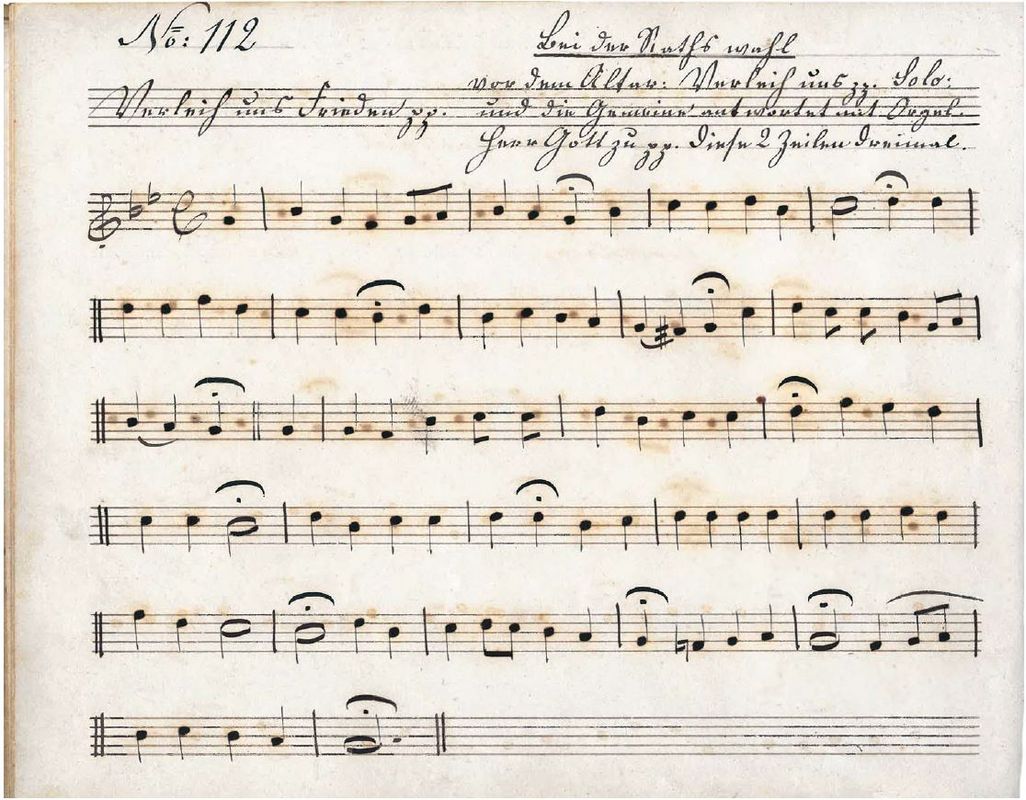 No: 112
Bei der Raths wahl
vor dem Altar: Verleih uns pp. Solo:
Verleih uns Frieden pp. und die Gemeine antwortet mit Orgel.
Herr Gott zu pp. Diese 2 Zeilen dreimal.